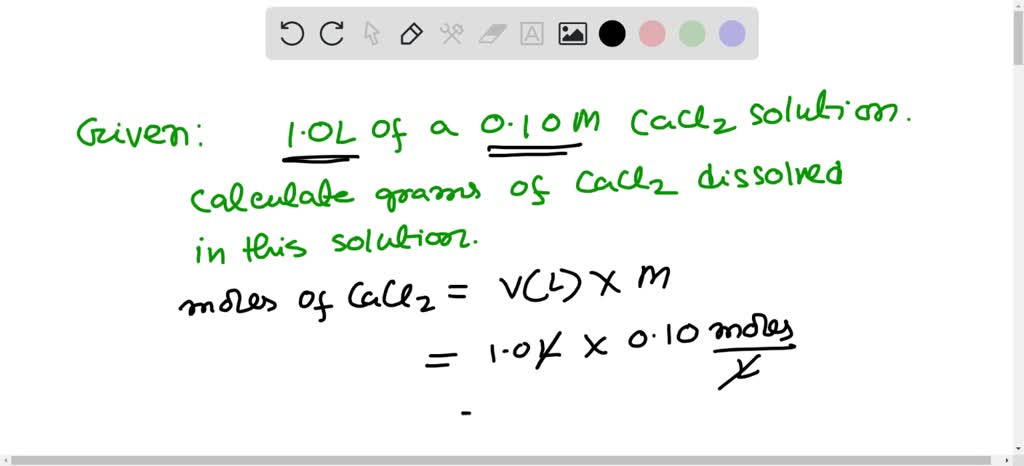 Given: 1.0L of a 0.10M CaCl2 solution.
calculate grams of CaCl2 dissolved
in this solution.
moles of CaCl2 = V(L) X M
= 1.0L X 0.10 moles/L
=